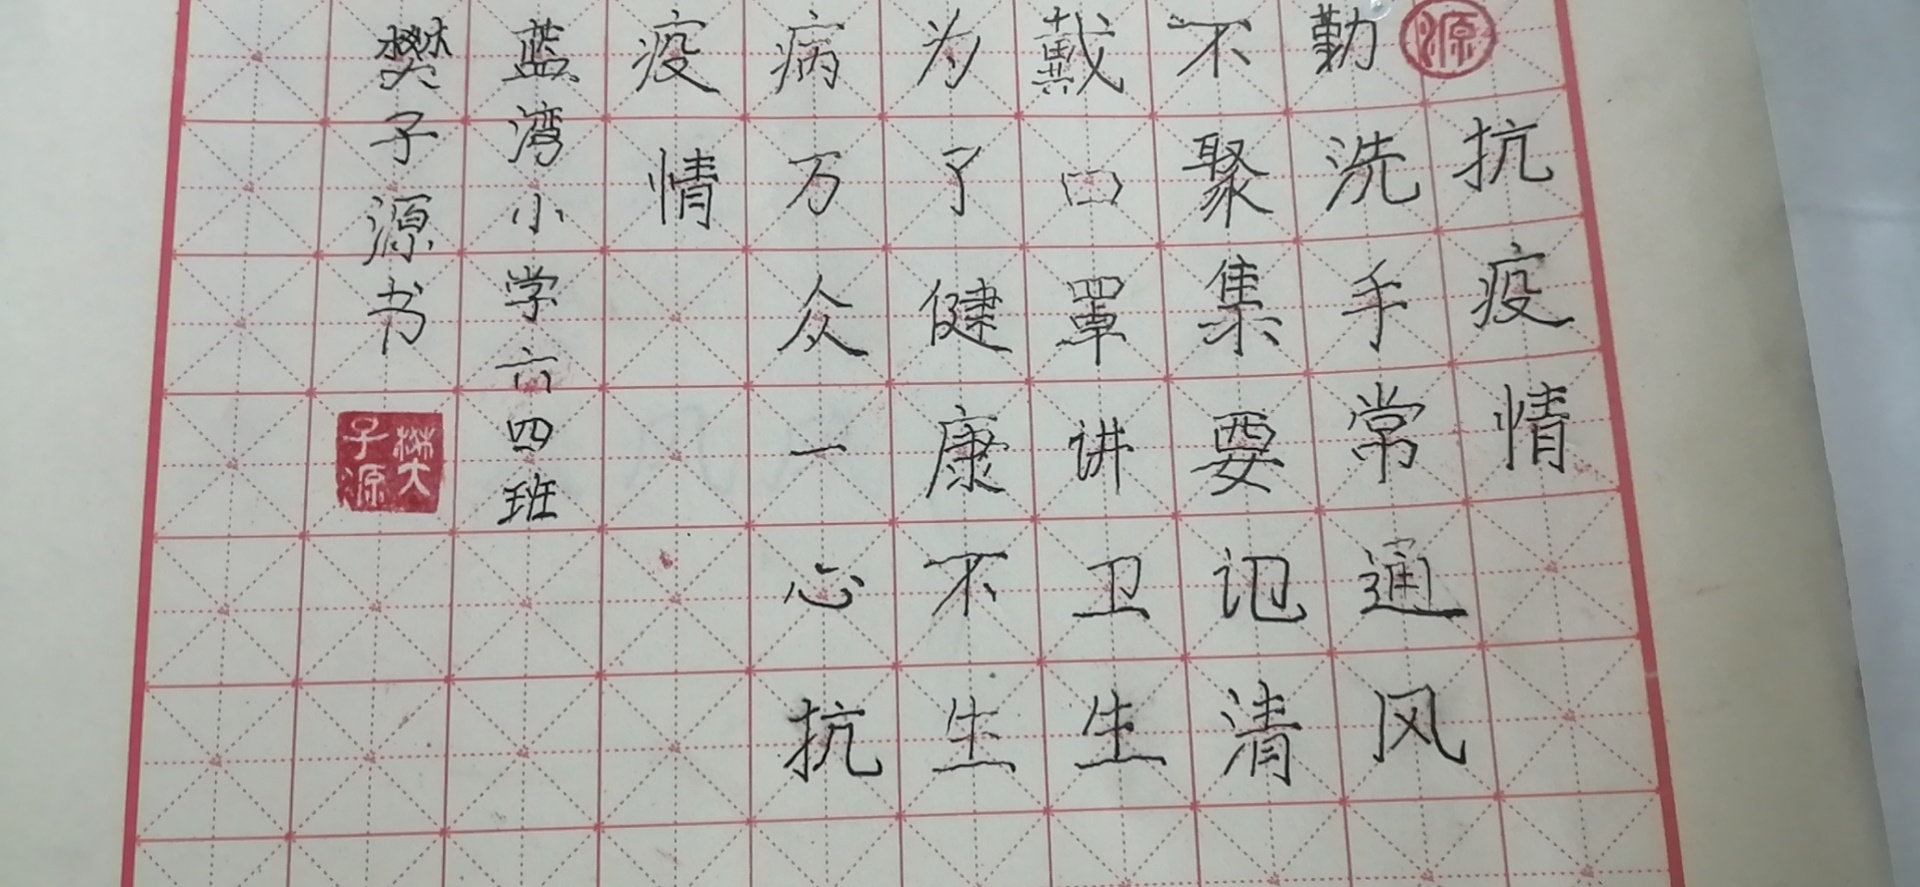 源
抗疫情
勤洗手常通风
不聚集要记清
戴口罩讲卫生
为了健康不生
病万众一心抗
疫情
蓝湾小学六四班
樊子源书
樊子源